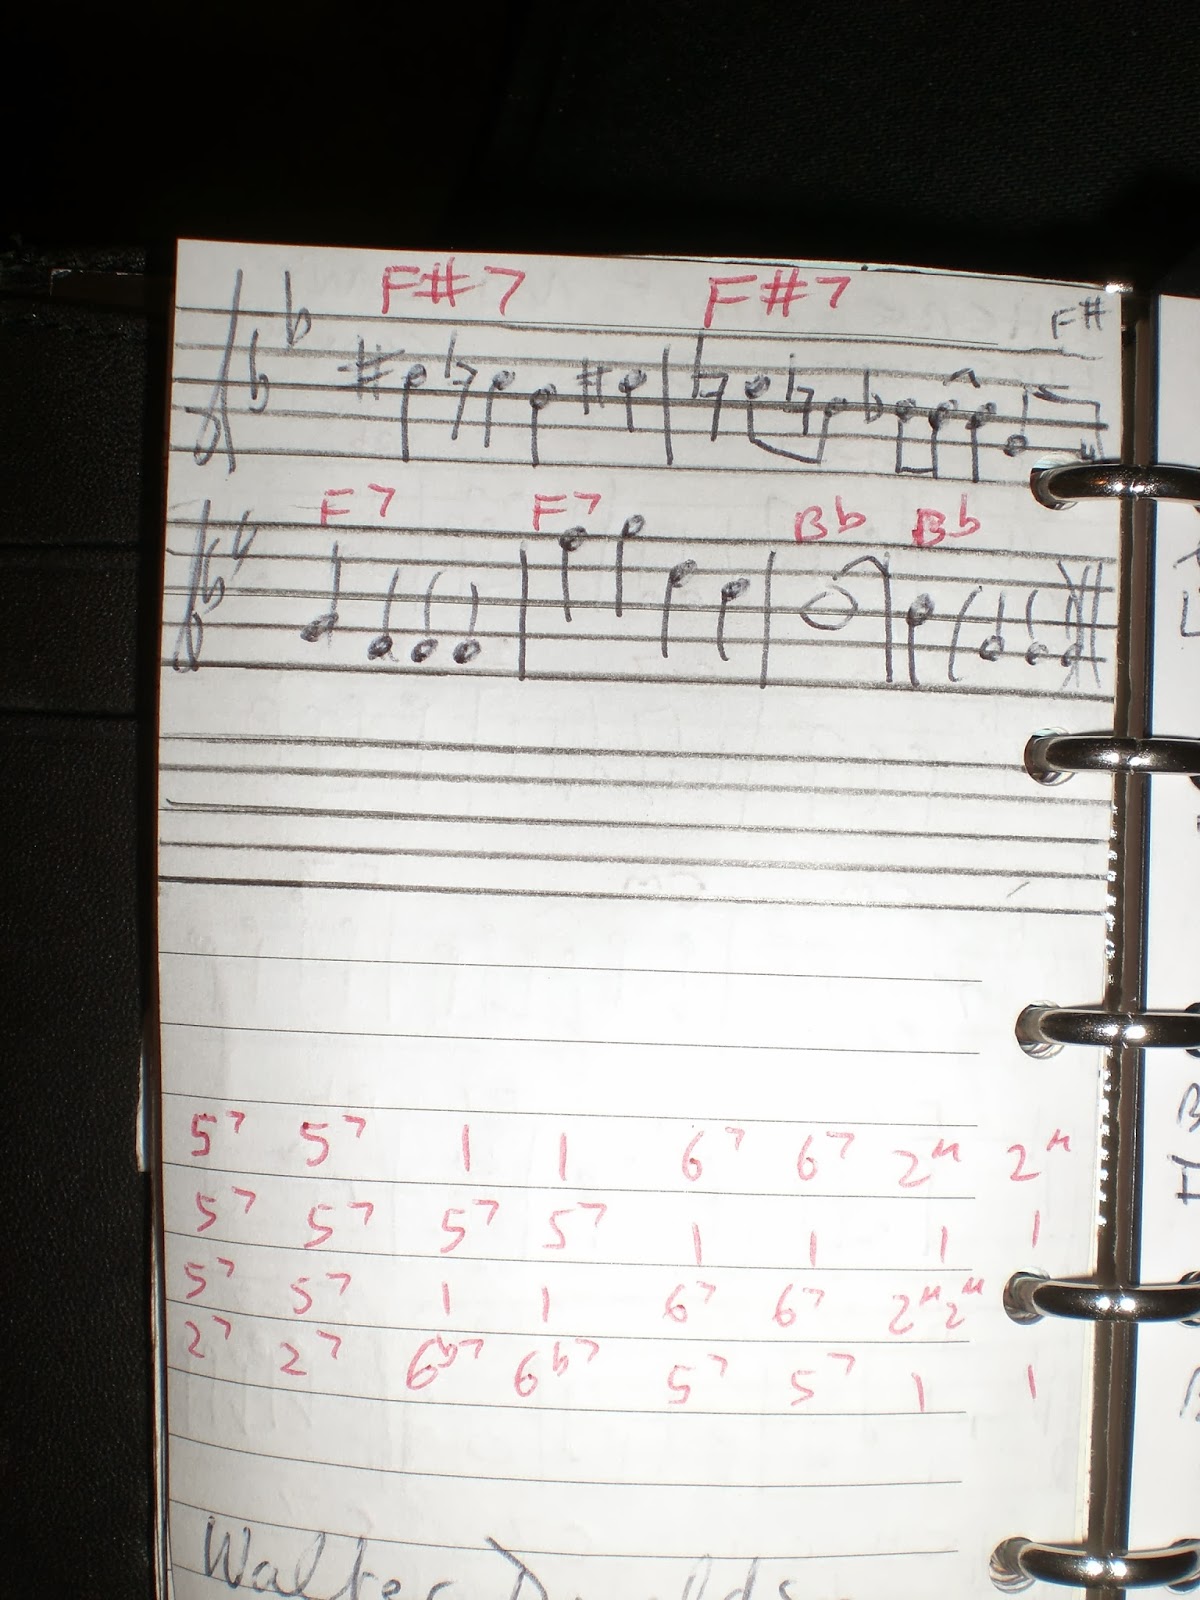 F#7 F#7 F#
F7 F7 Bb Bb
5⁷ 5⁷ 1 1 6⁷ 6⁷ 2ᴹ 2ᴹ
5⁷ 5⁷ 5⁷ 5⁷ 1 1 1 1
5⁷ 5⁷ 1 1 6⁷ 6⁷ 2ᴹ 2ᴹ
2⁷ 2⁷ 6b⁷ 6b⁷ 5⁷ 5⁷ 1 1
Walter